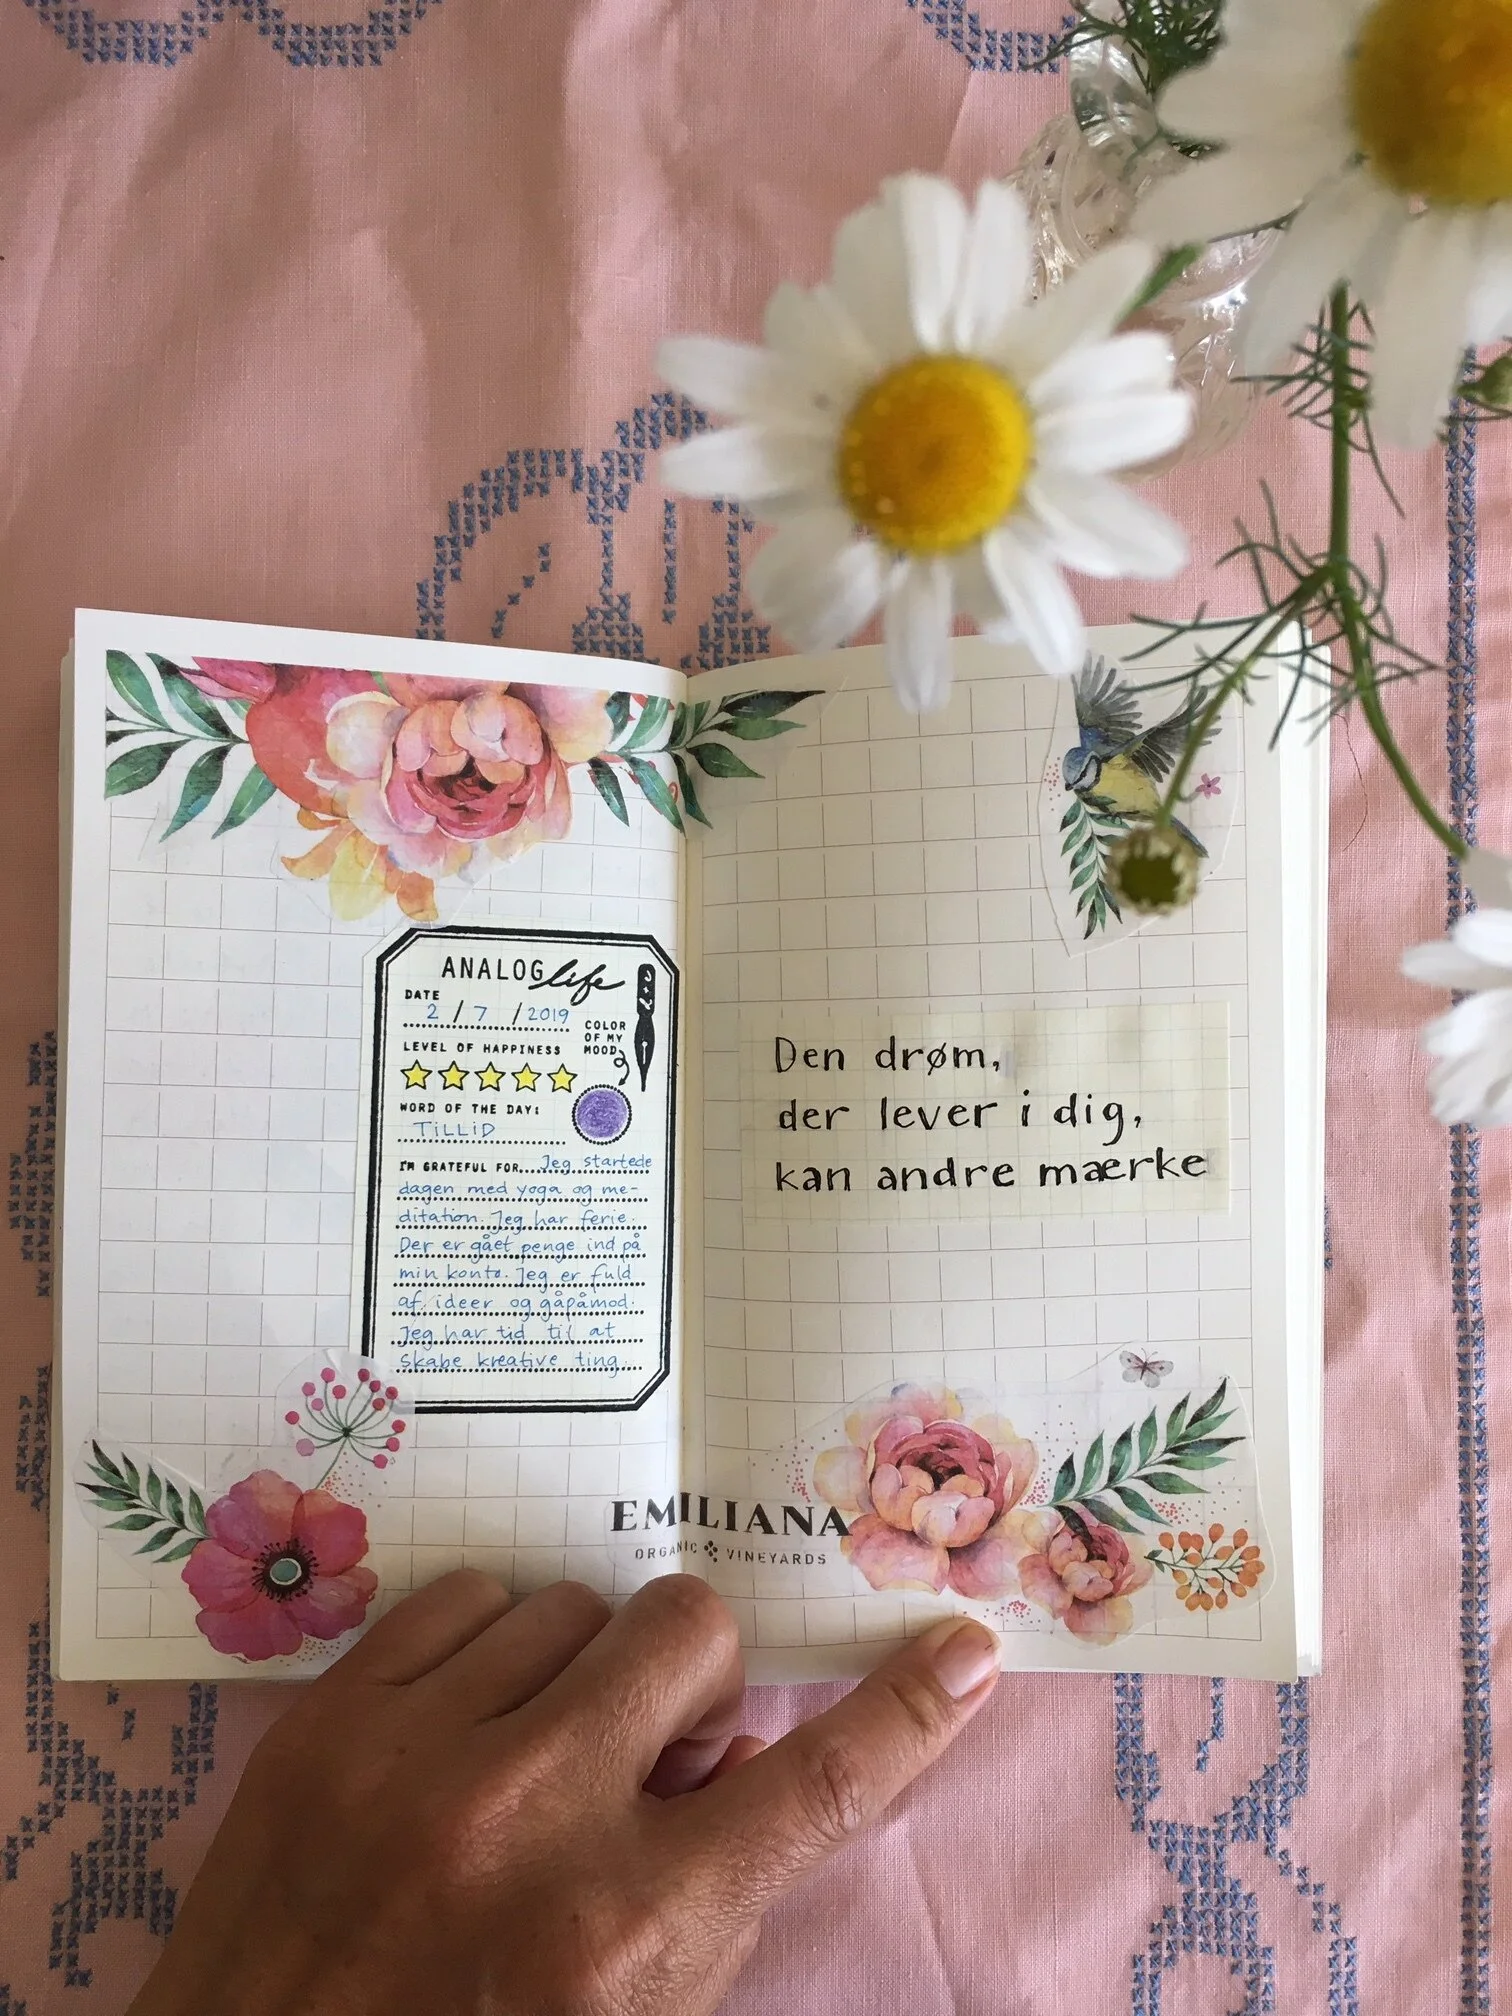 ANALOG life
DATE
2 / 7 / 2019
COLOR
OF MY
MOOD
LEVEL OF HAPPINESS
WORD OF THE DAY:
TiLLiD
I'M GRATEFUL FOR.... Jeg startede
dagen med yoga og me-
ditation. Jeg har ferie.
Der er gået penge ind på
min konto. Jeg er fuld
af ideer og gåpåmod.
Jeg har tid til at
skabe kreative ting.
Den drøm,
der lever i dig,
kan andre mærke
EMILIANA
ORGANIC VINEYARDS